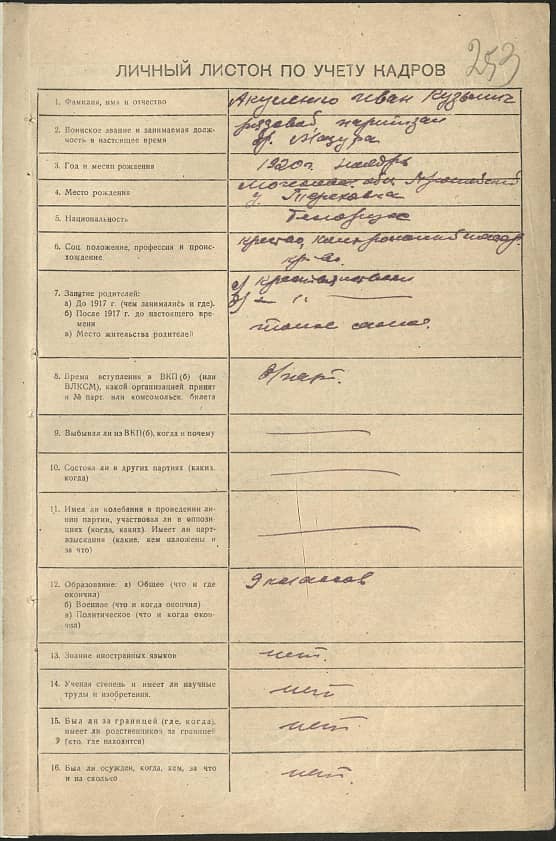 253
ЛИЧНЫЙ ЛИСТОК ПО УЧЕТУ КАДРОВ
1. Фамилия, имя и отчество
Акуленко Иван Кузьмич
2. Воинское звание и занимаемая долж-
ность в настоящее время
рядовой партизан
3. Год и месяц рождения
1920 г. ноябрь
4. Место рождения
обл.
Тереховка
5. Национальность
Белорус
6. Соц. положение, профессия и проис-
хождение
7. Занятие родителей:
а) До 1917 г. (чем занимались и где).
б) После 1917 г. до настоящего вре-
мени
в) Место жительства родителей
а)
б) — " —
8. Время вступления в ВКП(б) (или
ВЛКСМ), какой организацией принят
и № парт. или комсомольск. билета
б/парт.
9. Выбывал ли из ВКП(б), когда и почему
10. Состоял ли в других партиях (каких,
когда)
11. Имел ли колебания в проведении ли-
нии партии, участвовал ли в оппози-
циях (когда, каких). Имеет ли парт-
взыскания (какие, кем наложены и
за что)
12. Образование: а) Общее (что и где
окончил)
б) Военное (что и когда окончил)
в) Политическое (что и когда окон-
чил)
9 классов
13. Знание иностранных языков
нет.
14. Ученая степень и имеет ли научные
труды и изобретения.
нет
15. Был ли за границей (где, когда),
имеет ли родственников за границей
(кто, где находится)
нет.
16. Был ли осужден, когда, кем, за что
и на сколько
нет.